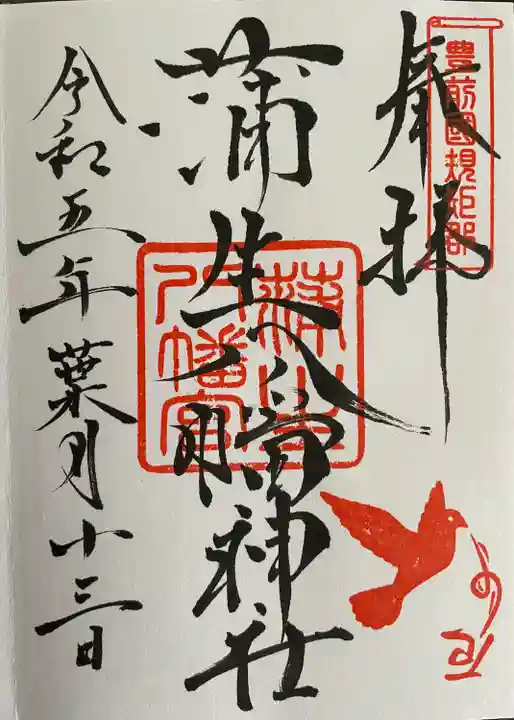 奉拝
豊前國規矩郡
蒲生八幡神社
蒲生八幡宮
令和五年葉月十三日